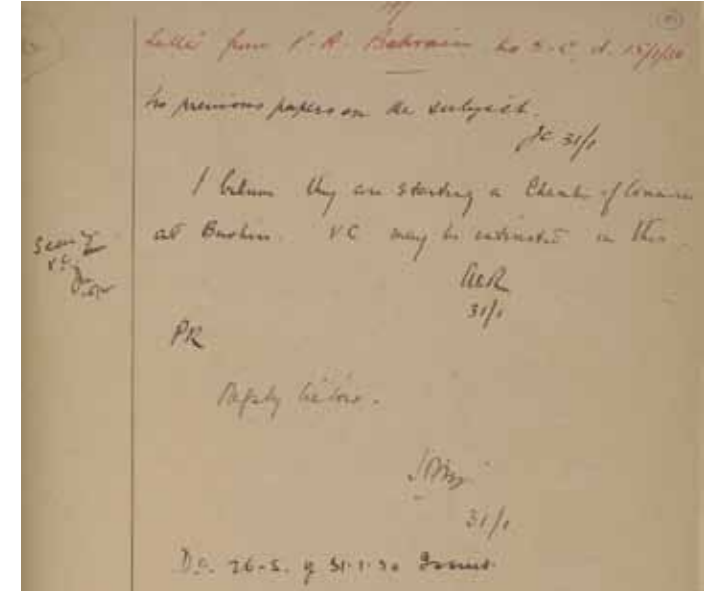 Letter from P. A. Bahrain to S-S. d. 15/1/30
No previous papers on the subject.
31/1
I believe they are starting a Chamber of Commerce
at Bushire. V.C. may be interested in this.
31/1
Seen by
V.C.
PR
Reply below.
31/1
D.O. 76-S. of 31.1.30 Issued.